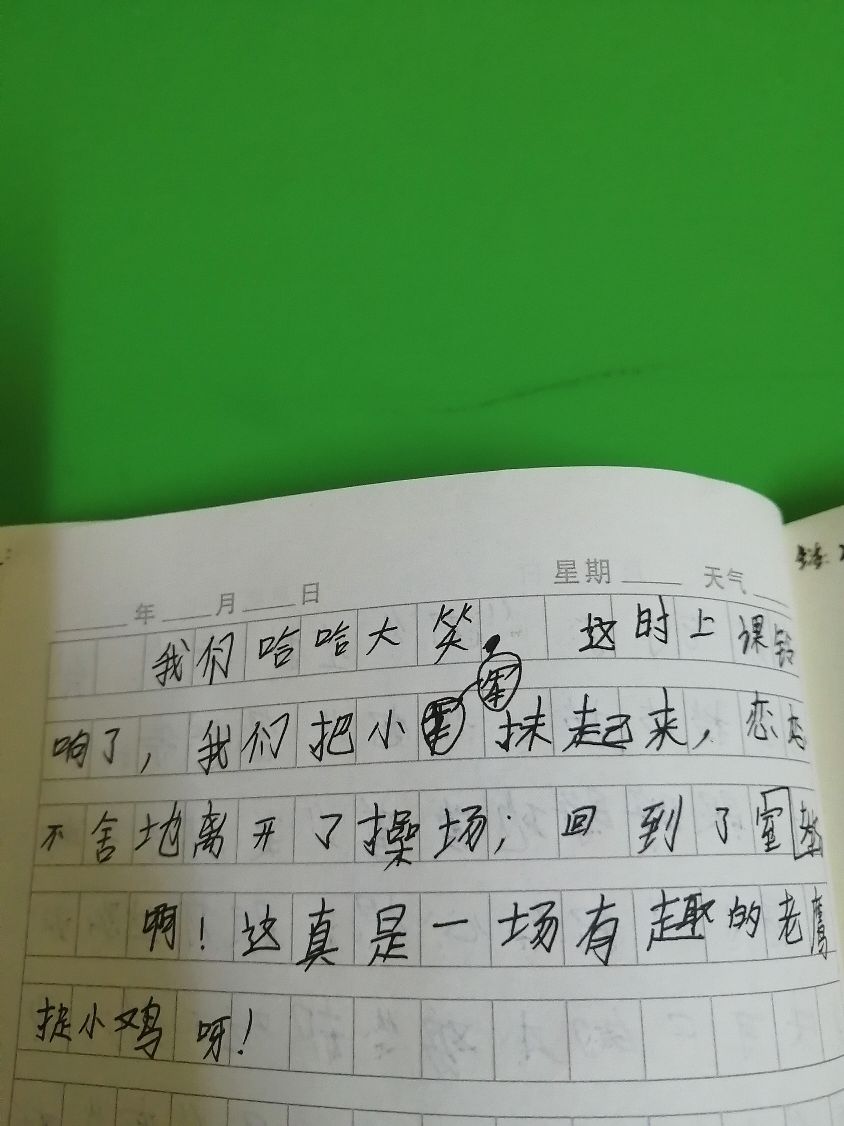 年 月 日 星期 天气
我们哈哈大笑。 这时上课铃
响了,我们把小军扶起来,恋恋
不舍地离开了操场;回到了室教
啊!这真是一场有趣的老鹰
捉小鸡呀!